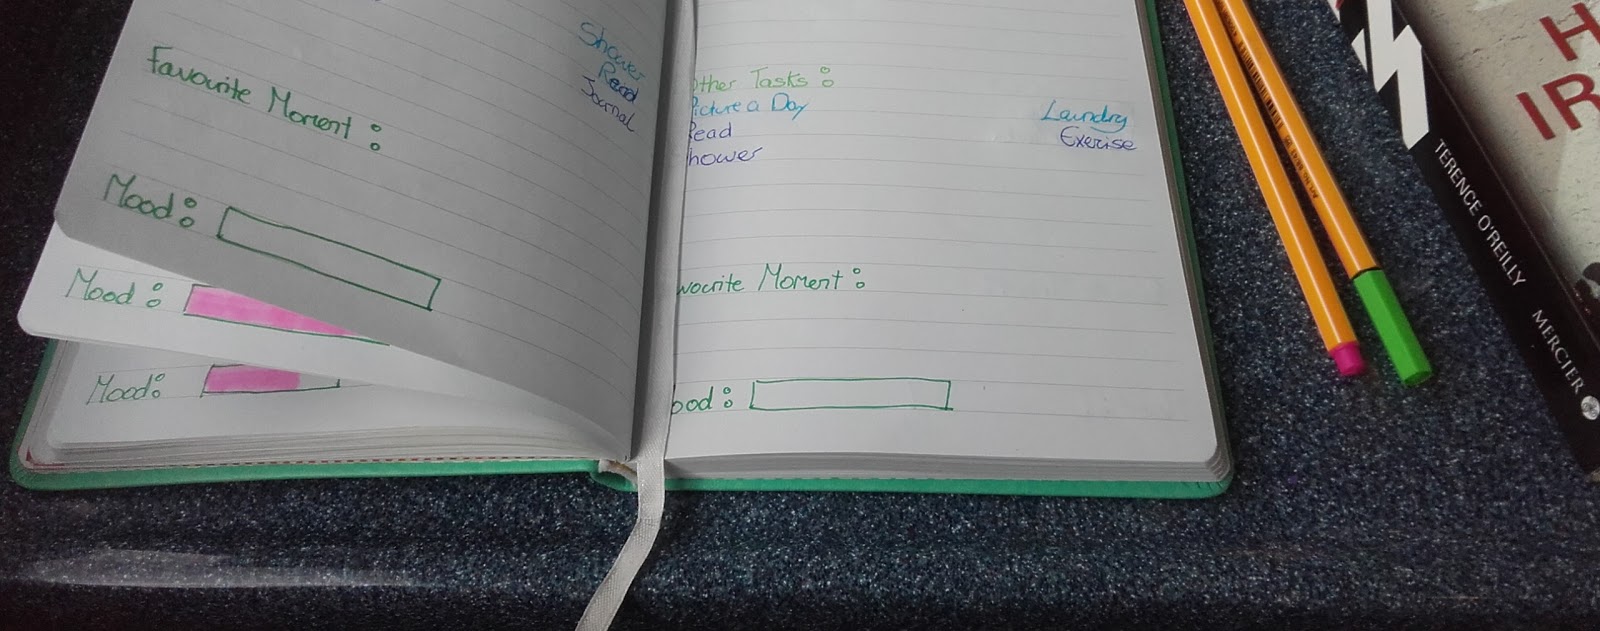 Shower
Read
Journal
Favourite Moment:
Mood:
Mood:
Mood:
ther Tasks:
icture a Day
Read
hower
Laundry
Exerise
vourite Moment:
ood:
H
IR
TERENCE O'REILLY
MERCIER